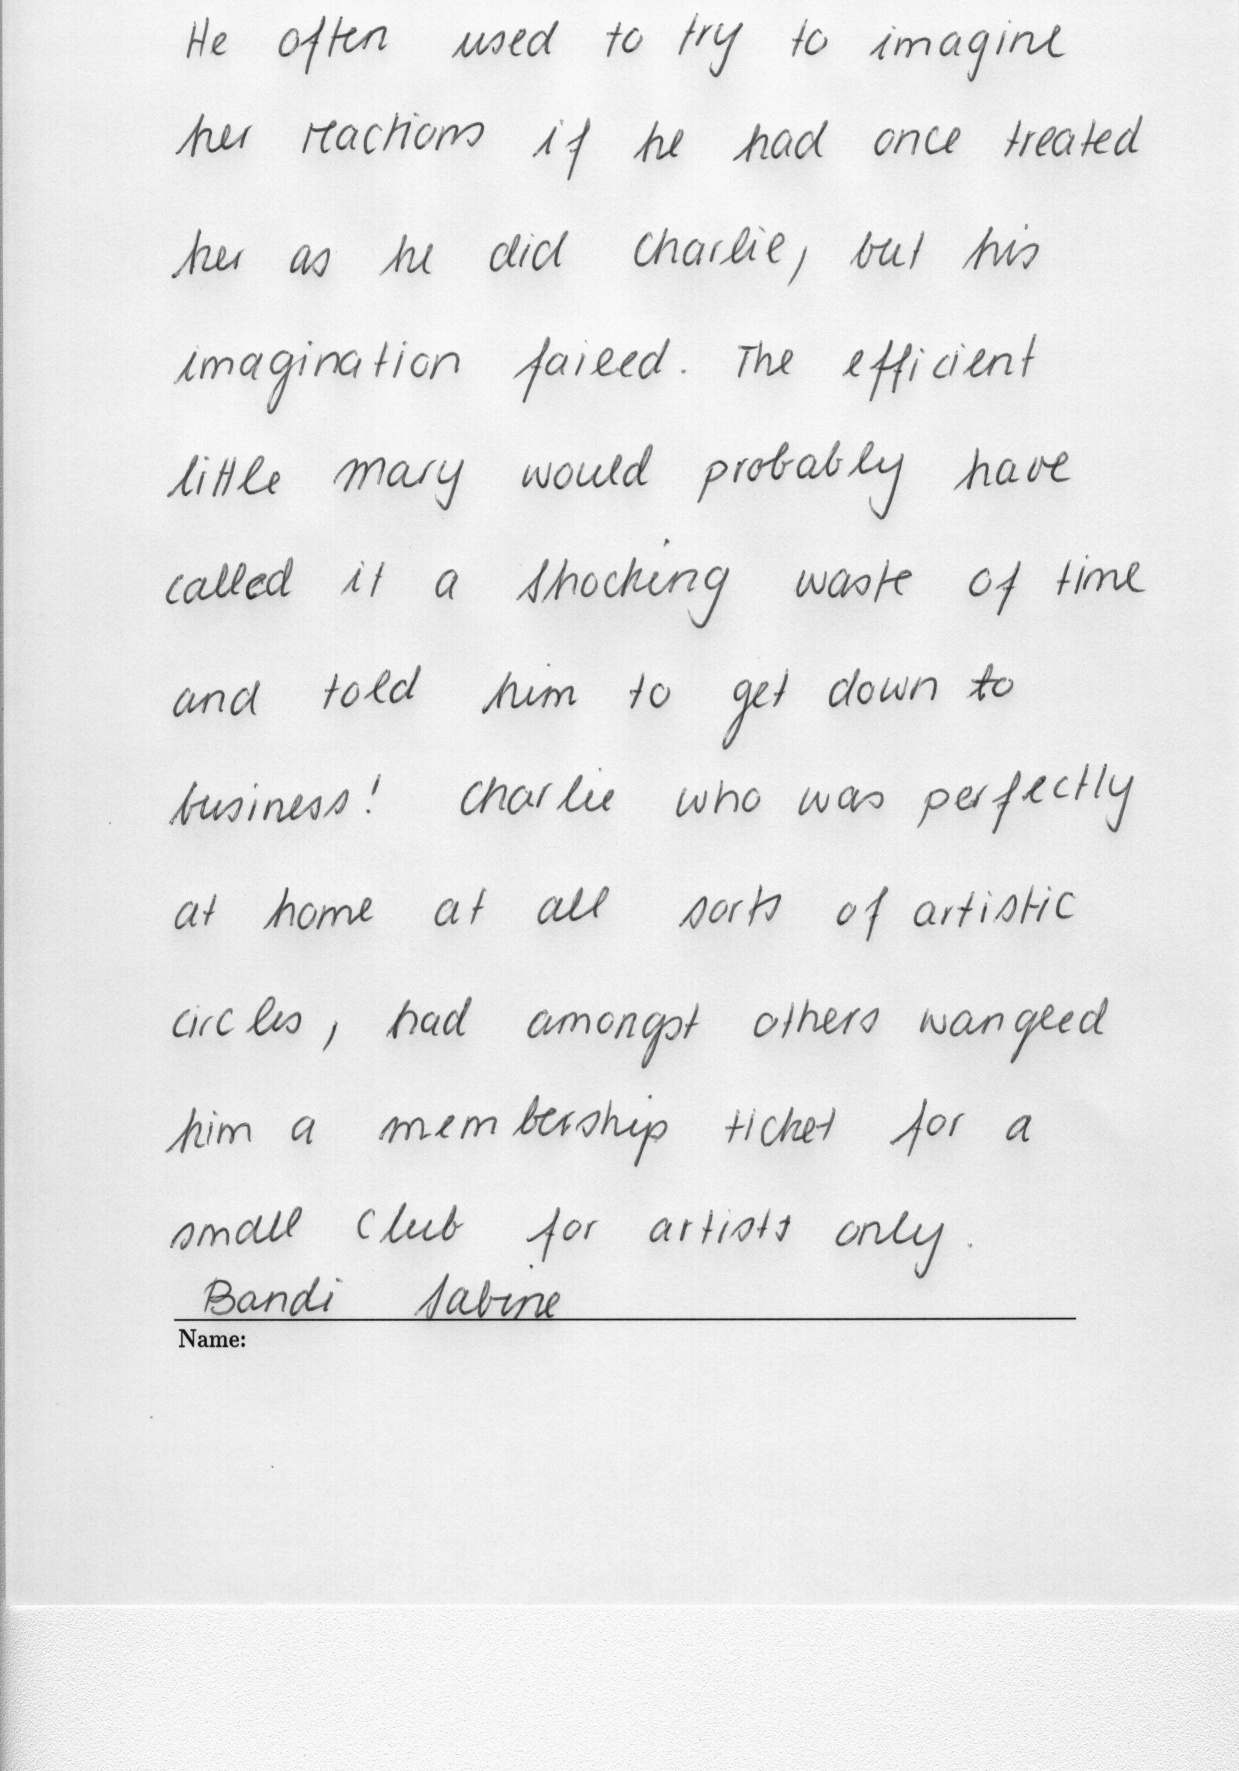 He often used to try to imagine
her reactions if he had once treated
her as he did Charlie, but his
imagination failed. The efficient
little Mary would probably have
called it a shocking waste of time
and told him to get down to
business! Charlie who was perfectly
at home at all sorts of artistic
circles, had amongst others wangled
him a membership ticket for a
small club for artists only.
Bandi Sabine
Name: